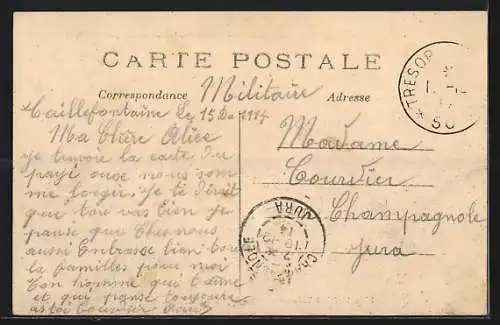 CARTE POSTALE
Correspondance Militaire Adresse
Caillefontaine Le 15 D 1914
Ma Chère Alice
Je tenvoie la carte du
pays ou se nous som
me loegir. Je te dirait
que tout vas bien je
panse que Chez nous
aussi Enbrasse bien tou
la familles pour moi
Ton homme qui t'aime
et qui panse toujours
a toi Courvier
Madame
Courvier
Champagnole
Jura
TRESOR
50
JURA